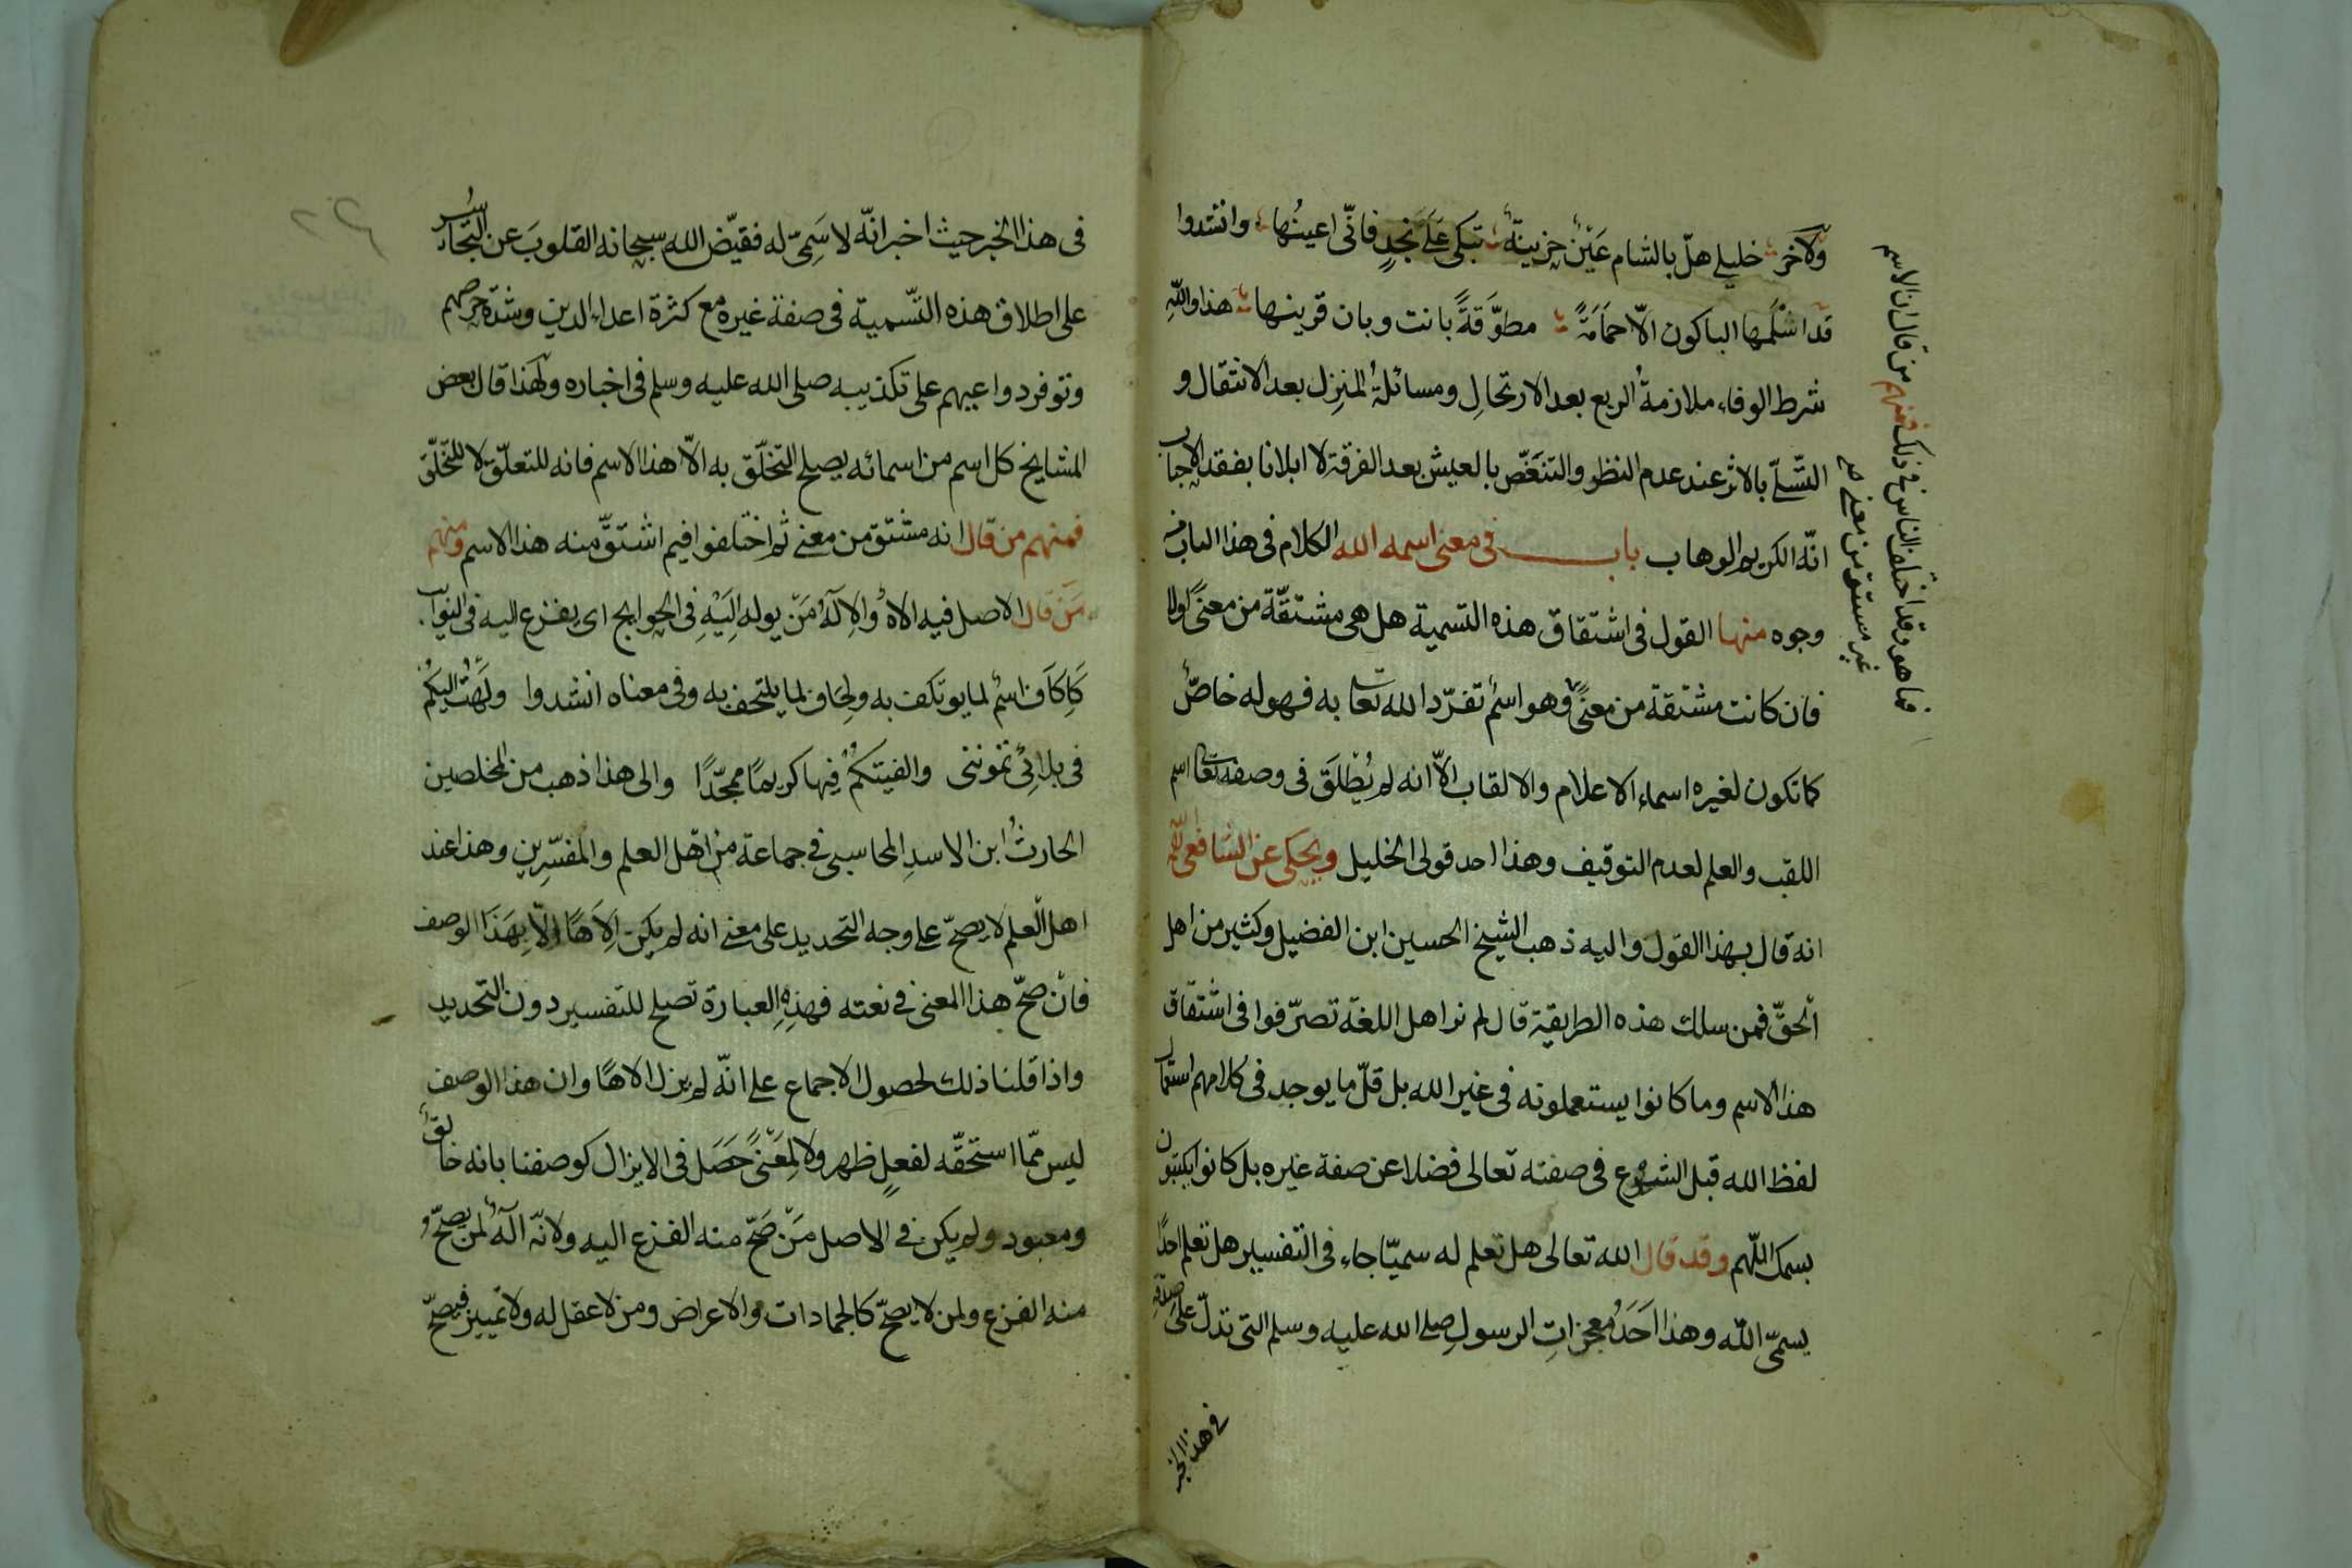 ولآخر خليلي هل بالشام عين حزينة تبكي على نجد فاني اعينها وانشدوا
قد اسلمها الباكون الا حمامة مطوقة بانت وبان قرينها هذا والله
شرط الوفاء ملازمة الربع بعد الارتحال ومسائلة المنزل بعد الانتقال و
التسلي بالاثر عند عدم النظر والتنغص بالعيش بعد الفرقة لا ابلانا بفقد الاحباب
انه الكريم الوهاب باب في معنى اسمه الله الكلام في هذا الباب من
وجوه منها القول في اشتقاق هذه التسمية هل هي مشتقة من معنى اولا
فان كانت مشتقة من معنى وهو اسم تفرد الله تعا به فهو له خاص
كما تكون لغيره اسماء الاعلام والالقاب الا انه لم يطلق في وصفه تعا اسم
اللقب والعلم لعدم التوقيف وهذا احد قولى الخليل ويحكى عن الشافعى
انه قال بهذا القول واليه ذهب الشيخ الحسين ابن الفضيل وكثير من اهل
الحق فمن سلك هذه الطريقة قال لم نر اهل اللغة تصرفوا في اشتقاق
هذا الاسم وما كانوا يستعملونه في غير الله بل قل ما يوجد في كلامهم استعمال
لفظ الله قبل الشرع في صفته تعالى فضلا عن صفة غيره بل كانوا يكتبون
بسمك اللهم وقد قال الله تعالى هل تعلم له سميا جاء في التفسير هل تعلم احدا
يسمى الله وهذا احد معجزات الرسول صلى الله عليه وسلم التى تدل على صدقه
في هذا الخبر
فما هو وقد اختلف الناس في ذلك فمنهم من قال ان الاسم
غير مشتق من معنى
في هذا الخبر حيث اخبر انه لا سمى له فقيض الله سبحانه القلوب عن التجاسر
على اطلاق هذه التسمية في صفة غيره مع كثرة اعداء الدين وشدة حرصهم
وتوفر دواعيهم على تكذيبه صلى الله عليه وسلم في اخباره ولهذا قال بعض
المشايخ كل اسم من اسمائه يصلح التخلق به الا هذا الاسم فانه للتعلق لا للتخلق
فمنهم من قال انه مشتق من معنى ثم اختلفوا فيم اشتق منه هذا الاسم ومنهم
من قال الاصل فيه الاه والاله من يوله اليه في الحوايج اى يفزع اليه في النوايب
كاكاف اسم لما يوتكف به ولحاف لما يلتحف به وفي معناه انشدوا ولهت اليكم
في بلائى تمونني والفيتكم فيها كريما ممجدا والى هذا ذهب من المخلصين
الحارث ابن الاسد المحاسبى في جماعة من اهل العلم والمفسرين وهذا عند
اهل العلم لا يصح على وجه التحديد على معنى انه لم يكن الاها الا بهذا الوصف
فان صح هذا المعنى في نعته فهذه العبارة تصلح للتفسير دون التحديد
واذا قلنا ذلك لحصول الاجماع على انه لم يزل الاها وان هذا الوصف
ليس مما استحقه لفعل ظهر ولا لمعنى حصل في الايزال كوصفنا بانه خالق
ومعبود ولم يكن في الاصل من صح منه الفزع اليه ولانه اله لمن يصح
منه الفزع ولمن لا يصح كالجمادات والاعراض ومن لا عقل له ولا تمييز فيصح